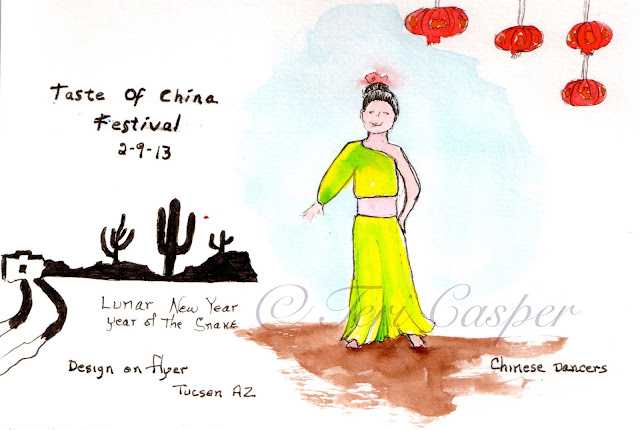 Taste Of China
Festival
2-9-13
Lunar New Year
Year of the Snake
© Teri Casper
Design on flyer
Tucson AZ
Chinese Dancers